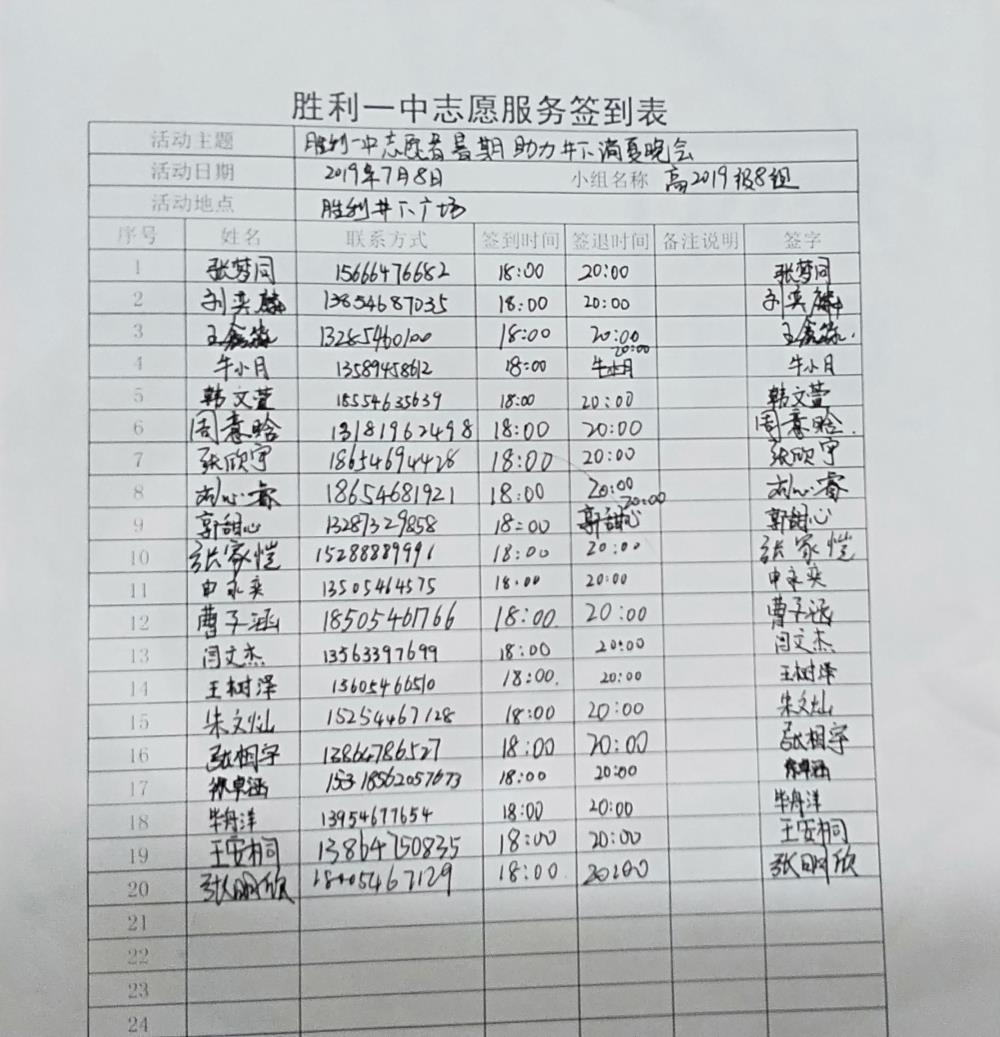 胜利一中志愿服务签到表
活动主题 胜利一中志愿者暑期助力井下消夏晚会
活动日期 2019年7月8日 小组名称 高2019级8组
活动地点 胜利井下广场
序号 姓名 联系方式 签到时间 签退时间 备注说明 签字
1 张梦同 15666476682 18:00 20:00 张梦同
2 刘奕麟 13854687035 18:00 20:00 刘奕麟
3 13285460100 18:00 20:00
4 牛小月 13589458612 18:00 20:00 牛小月 牛小月
5 韩文萱 18554635639 18:00 20:00 韩文萱
6 周意晗 13181962498 18:00 20:00 周意晗
7 张欣宇 18654694428 18:00 20:00 张欣宇
8 刘心睿 18654681921 18:00 20:00 刘心睿
9 郭甜心 13287329858 18:00 20:00 郭甜心 郭甜心
10 张家恺 15288889991 18:00 20:00 张家恺
11 申永奕 13505464575 18:00 20:00 申永奕
12 曹子涵 18505461766 18:00 20:00 曹子涵
13 闫文杰 13563397699 18:00 20:00 闫文杰
14 王树泽 13605466510 18:00 20:00 王树泽
15 朱文灿 15254467128 18:00 20:00 朱文灿
16 张相宇 13864786527 18:00 20:00 张相宇
17 徐卓涵 18562057673 18:00 20:00 徐卓涵
18 毕舟洋 13954677654 18:00 20:00 毕舟洋
19 王安桐 13864750835 18:00 20:00 王安桐
20 张明欣 18:00 20:00 张明欣
21
22
23
24